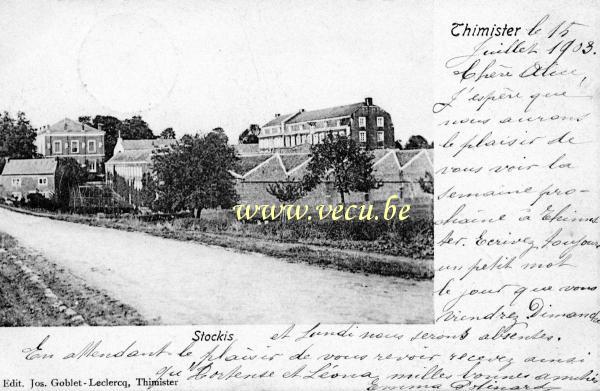 Thimister le 15
Juillet 1903.
Chère Alice,
J'espère que
nous aurons
le plaisir de
vous voir la
semaine pro-
chaine à Thimis
ter. Ecrivez toujours
un petit mot
le jour que vous
viendrez Dimanche
www.vecu.be
Stockis
et Lundi nous serons absentes.
En attendant le plaisir de vous revoir recevez ainsi
qu'Hortense et Léona, milles bonnes amitiés
Edit. Jos. Goblet-Leclercq, Thimister
Emma